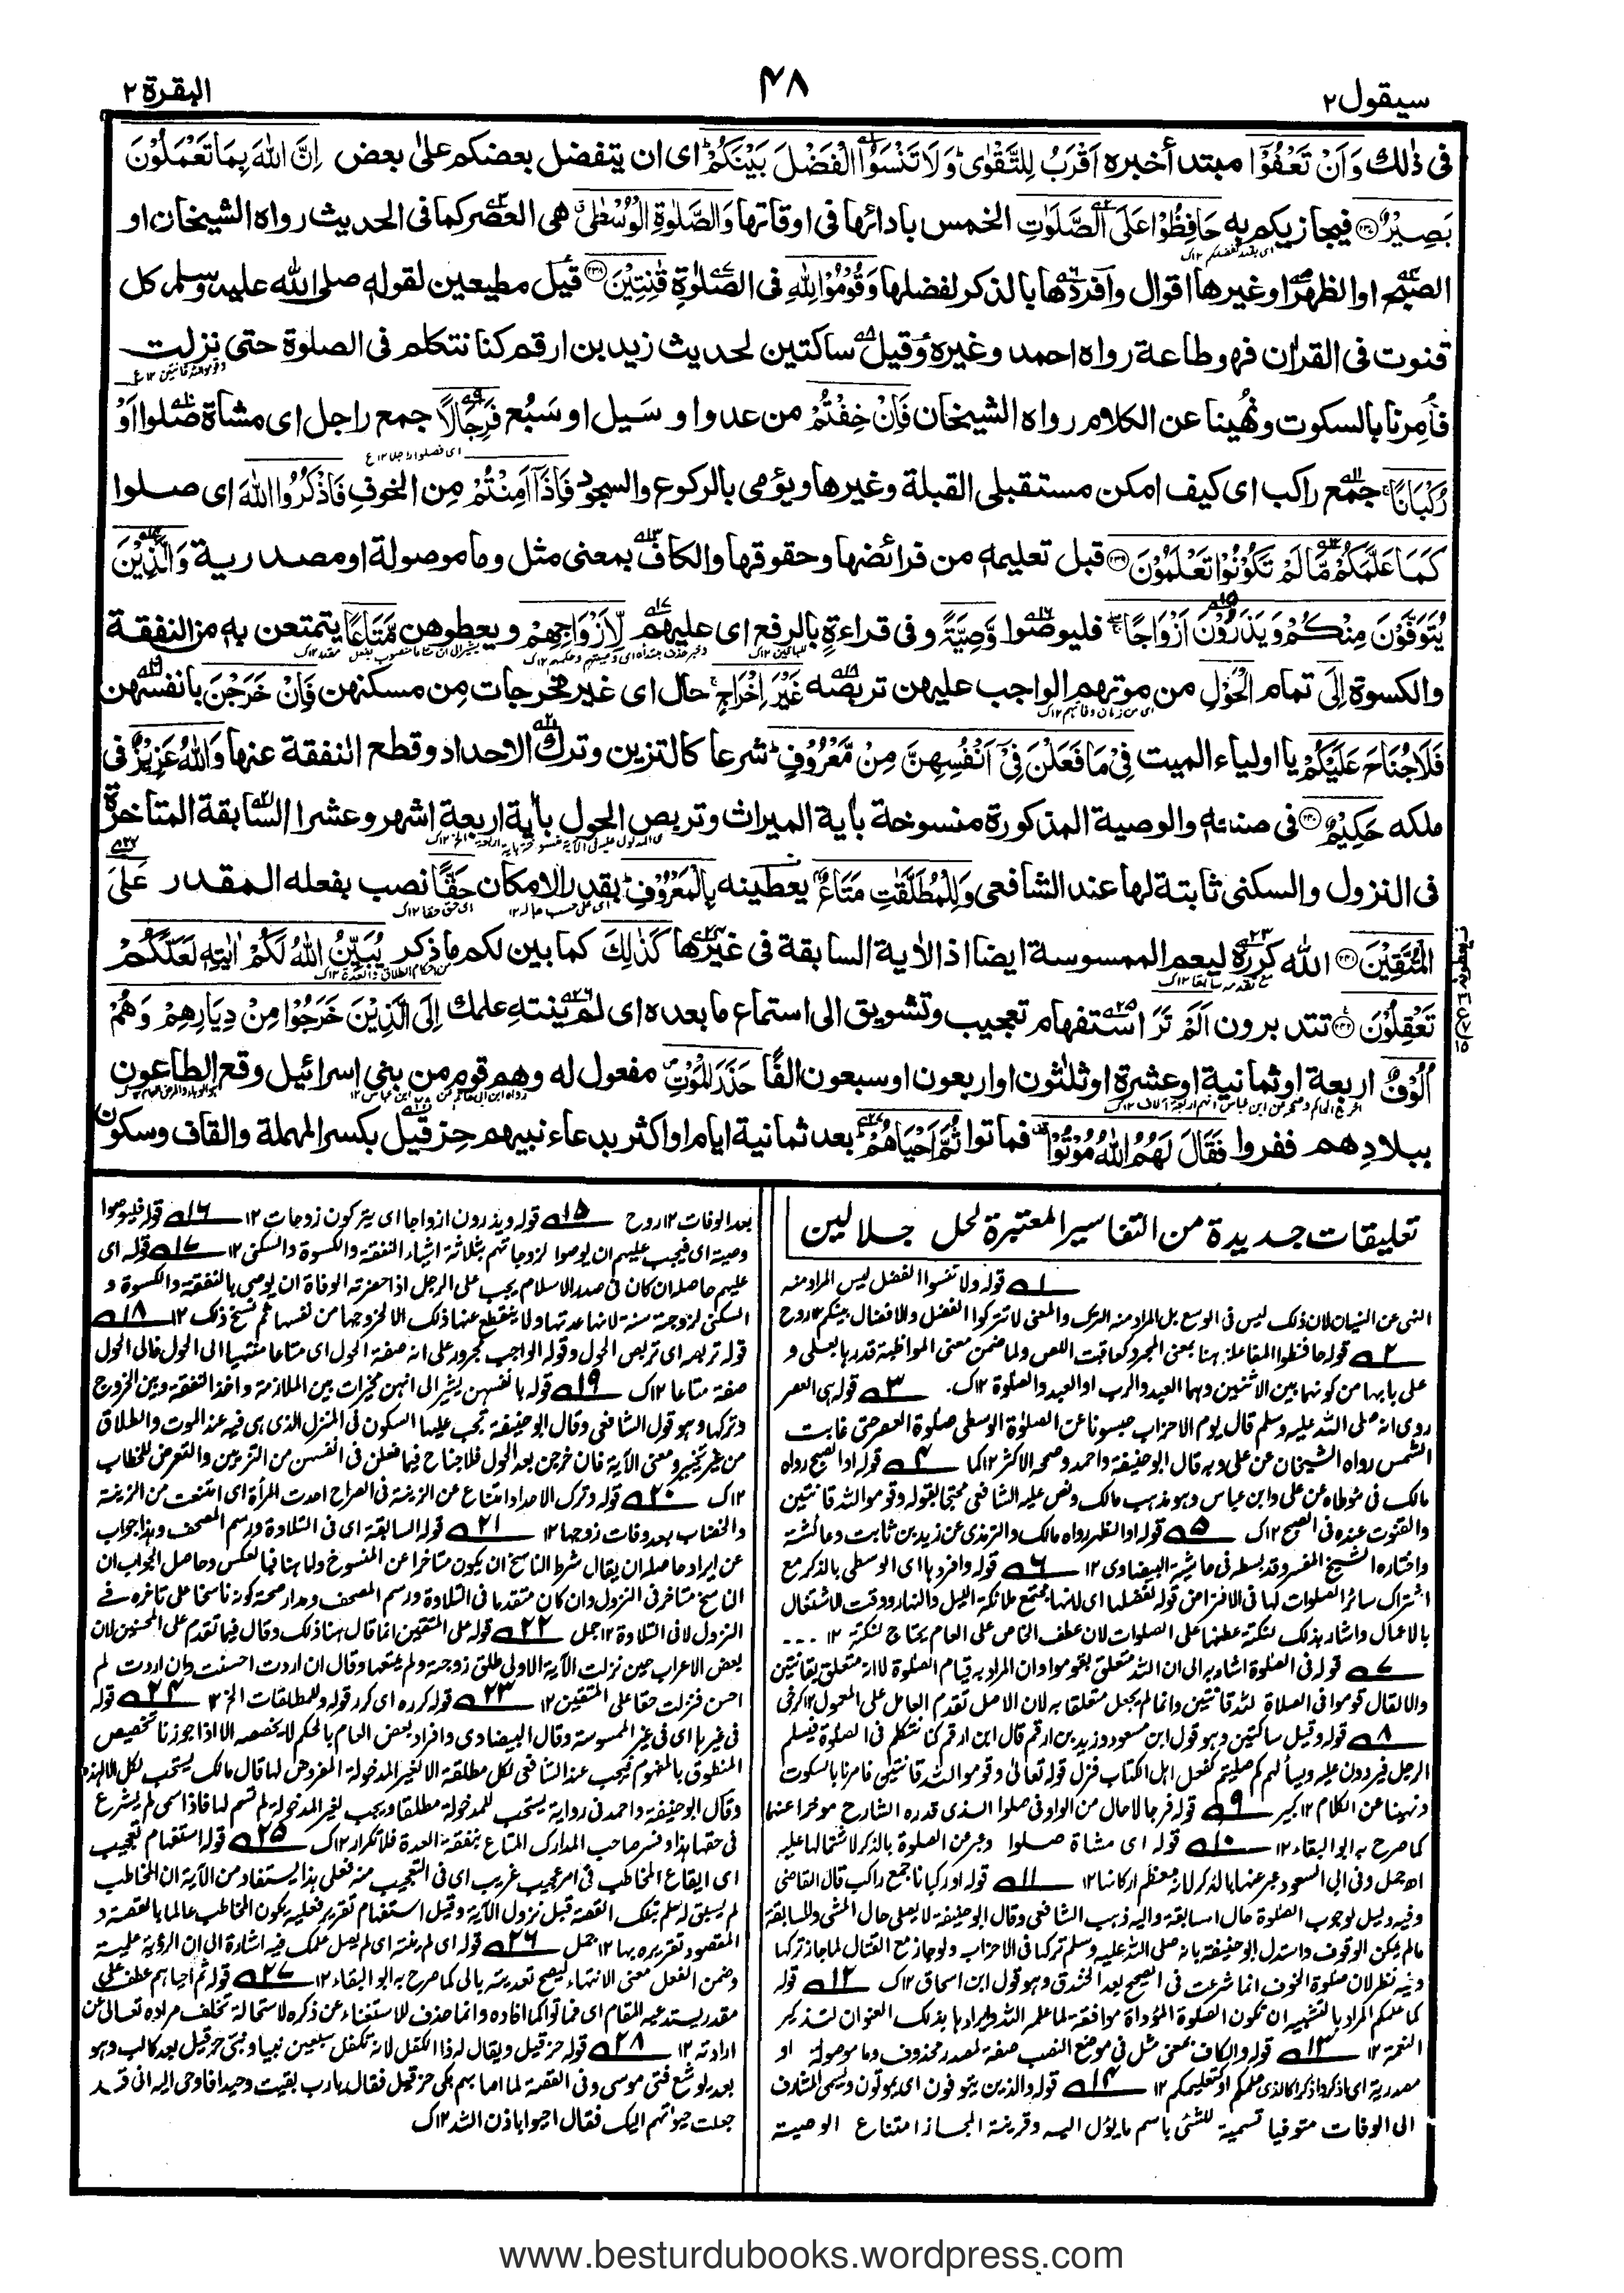 سيقول٢
٤٨
البقرة ٢
فى ذٰلك وَاَنْ تَعْفُوْٓا مبتدأ خبره اَقْرَبُ لِلتَّقْوٰى ؕ وَلَا تَنْسَوُا الْفَضْلَ بَيْنَكُمْ ؕ اى ان يتفضل بعضكم على بعض اِنَّ اللّٰهَ بِمَا تَعْمَلُوْنَ
بَصِيْرٌ ۝٢٣٧ فيجازيكم به حَافِظُوْا عَلَى الصَّلَوٰتِ الخمس بادائها فى اوقاتها وَالصَّلٰوةِ الْوُسْطٰى هى العصر كما فى الحديث رواه الشيخان او
الصبح او الظهر او غيرها اقوال وافردها بالذكر لفضلها وَقُوْمُوْا لِلّٰهِ فى الصلوٰة قٰنِتِيْنَ ۝٢٣٨ قيل مطيعين لقوله صلى الله عليه وسلم كل
قنوت فى القرٰان فهو طاعة رواه احمد وغيره وقيل ساكتين لحديث زيد بن ارقم كنا نتكلم فى الصلوة حتى نزلت
فأُمِرنا بالسكوت ونُهينا عن الكلام رواه الشيخان فَاِنْ خِفْتُمْ من عدو او سَيل او سَبُع فَرِجَالًا جمع راجل اى مشاة صلوا اَوْ
رُكْبَانًا ۚ جمع راكب اى كيف امكن مستقبلى القبلة وغيرها ويؤمى بالركوع والسجود فَاِذَآ اَمِنْتُمْ مِن الخوف فَاذْكُرُوا اللّٰهَ اى صلوا
كَمَا عَلَّمَكُمْ مَّا لَمْ تَكُوْنُوْا تَعْلَمُوْنَ ۝٢٣٩ قبل تعليمه من فرائضها وحقوقها والكاف بمعنى مثل وما موصولة او مصدرية وَالَّذِيْنَ
يُتَوَفَّوْنَ مِنْكُمْ وَيَذَرُوْنَ اَزْوَاجًا ۖ فليوصوا وَّصِيَّةً وفى قراءةٍ بالرفع اى عليهم لِّاَزْوَاجِهِمْ ويعطوهن مَّتَاعًا يتمتعن به من النفقة
والكسوة اِلَى تمام الْحَوْلِ من موتهم الواجب عليهن تربصه غَيْرَ اِخْرَاجٍ ۚ حال اى غير مخرجات مِن مسكنهن فَاِنْ خَرَجْنَ بانفسهن
فَلَا جُنَاحَ عَلَيْكُمْ يا اولياء الميت فِىْ مَا فَعَلْنَ فِىْٓ اَنْفُسِهِنَّ مِنْ مَّعْرُوْفٍ ؕ شرعا كالتزين وترك الاحداد وقطع النفقة عنها وَاللّٰهُ عَزِيْزٌ فى
ملكه حَكِيْمٌ ۝٢٤٠ فى صنعه والوصية المذكورة منسوخة باٰية الميراث وتربص الحول باٰية اربعة اشهر وعشرا السابقة المتأخرة
فى النزول والسكنى ثابتة لها عند الشافعى وَلِلْمُطَلَّقٰتِ مَتَاعٌ يعطينه بِالْمَعْرُوْفِ ؕ بقدر الامكان حَقًّا نصب بفعله المقدر عَلَى
الْمُتَّقِيْنَ ۝٢٤١ الله كرره ليعم الممسوسة ايضا اذ الاٰية السابقة فى غيرها كَذٰلِكَ كما بين لكم ما ذكر يُبَيِّنُ اللّٰهُ لَكُمْ اٰيٰتِهٖ لَعَلَّكُمْ
تَعْقِلُوْنَ ۝٢٤٢ تتدبرون اَلَمْ تَرَ استفهام تعجيب وتشويق الى استماع ما بعده اى لم ينته علمك اِلَى الَّذِيْنَ خَرَجُوْا مِنْ دِيَارِهِمْ وَهُمْ
اُلُوْفٌ اربعة او ثمانية او عشرة او ثلثون او اربعون او سبعون الفًا حَذَرَ الْمَوْتِ مفعول له وهم قوم من بنى اسرائيل وقع الطاعون
ببلادِهم ففروا فَقَالَ لَهُمُ اللّٰهُ مُوْتُوْا فماتوا ثُمَّ اَحْيَاهُمْ ؕ بعد ثمانية ايام او اكثر بدعاء نبيهم حِزقيل بكسر المهملة والقاف وسكون
تعليقات جديدة من التفاسير المعتبرة لحل جلالين
١ قوله ولا تنسوا الفضل ليس المراد منه
النهى عن النسيان لان ذلك ليس فى الوسع بل المراد منه الترك والمعنى لا تتركوا الفضل والافضال بينكم ١٢ روح
٢ قوله حافظوا المفاعلة هنا بمعنى المجرد كعاقبت اللص ولما ضمن معنى المواظبة قدرها بعلى و
على بابها من كونها بين الاثنين وهما العبد والرب او العبد والصلوة ١٢ك. ٣ قوله هى العصر
روى انه صلى الله عليه وسلم قال يوم الاحزاب حبسونا عن الصلوٰة الوسطى صلوٰة العصر حتى غابت
الشمس رواه الشيخان عن على وبه قال ابو حنيفة واحمد وصححه الاكثر ١٢ كما ٤ قوله او الصبح رواه
مالك فى مؤطاه عن على وابن عباس وهو مذهب مالك ونص عليه الشافعى محتجا بقوله وقوموا لله قانتين
والقنوت عنده فى الصبح ١٢ك ٥ قوله او الظهر رواه مالك والترمذى عن زيد بن ثابت وعائشة
واختاره الشيخ المفسر وقد بسطه فى حاشية البيضاوى ١٢ ٦ قوله وافردها اى الوسطى بالذكر مع
اشتراك سائر الصلوات لها فى الافتراض قوله لفضلها اى لانها مجتمع ملائكة الليل والنهار ووقت الاشتغال
بالاعمال واشار بذلك لنكتة عطفها على الصلوات لان عطف الخاص على العام يحتاج لنكتة ١٢ ...
٧ قوله فى الصلوة اشار به الى ان لله متعلق بقوموا وان المراد به قيام الصلوة لا انه متعلق بقانتين
والا لقال قوموا فى الصلاة لله قانتين وانما لم يجعل متعلقا به لان الاصل تقدم العامل على المعمول ١٢ كرخى
٨ قوله وقيل ساكتين وهو قول ابن مسعود وزيد بن ارقم قال ابن ارقم كنا نتكلم فى الصلوة فيسلم
الرجل فيردون عليه ويسألهم كم صليتم كفعل اهل الكتاب فنزل قوله تعالى وقوموا لله قانتين فامرنا بالسكوت
ونهينا عن الكلام ١٢ كبير ٩ قوله فرجالا حال من الواو فى صلوا الذى قدره الشارح موخرا عنها
كما صرح به ابو البقاء ١٢ ١٠ قوله اى مشاة صلوا وعبر عن الصلوة بالذكر لاشتمالها عليه
اه جمل وفى ابى السعود عبر عنها بالذكر لانه معظم اركانها ١٢ ١١ قوله او ركبانا جمع راكب قال القاضى
وفيه دليل لوجوب الصلوة حال المسابقة واليه ذهب الشافعى وقال ابو حنيفة لا يصلى حال المشى والمسابقة
مالم يمكن الوقوف واستدل ابو حنيفة بانه صلى الله عليه وسلم تركها فى الاحزاب ولو جاز مع القتال لما جاز تركها
وفيه نظر لان صلوة الخوف انما شرعت فى الصحيح بعد الخندق وهو قول ابن اسحاق ١٢ك ١٢ قوله
كما علمكم المراد بالتشبيه ان تكون الصلوة المؤداة موافقة لما علمه الله وايرادها بذلك العنوان لتذكير
النعمة ١٢ ١٣ قوله والكاف بمعنى مثل فى موضع النصب صفة لمصدر محذوف وما موصولة او
مصدرية اى اذكروا ذكرا كالذى علمكم او كتعليمكم ١٢ ١٤ قوله والذين يتوفون اى يموتون ويسمى المشارف
الى الوفات متوفيا تسمية للشئ باسم ما يؤل اليه وقرينة المجاز امتناع الوصية
بعد الوفات ١٢ روح ١٥ قوله ويذرون ازواجا اى يتركون زوجات ١٢ ١٦ قوله فليوصوا
وصية اى فيجب عليهم ان يوصوا لزوجاتهم بثلاثة اشياء النفقة والكسوة والسكنى ١٢ ١٧ قوله اى
عليهم حاصله ان كان فى صدر الاسلام يجب على الرجل اذا حضرته الوفاة ان يوصى بالنفقة والكسوة و
السكنى لزوجته سنة لانها عدتها ولا ينقطع عنها ذلك الا لخروجها من نفسها ثم نسخ ذلك ١٢ ١٨
قوله تربصه اى تربص الحول وقوله الواجب مجرور على انه صفة الحول اى متاعا منتهيا الى الحول فالى الحول
صفة متاعا ١٢ك ١٩ قوله بانفسهن يشير الى انهن مخيرات بين الملازمة واخذ النفقة وبين الخروج
وتركها وهو قول الشافعى وقال ابو حنيفة تجب عليها السكون فى المنزل الذى هى فيه عند الموت والطلاق
من غير تخيير ومعنى الآية فان خرجن بعد الحول فلا جناح فيما فعلن فى انفسهن من التزين والتعرض للخطاب
١٢ك ٢٠ قوله وترك الاحداد امتناع عن الزينة فى الصراح احدت المرأة اى امتنعت من الزينة
والخضاب بعد وفات زوجها ١٢ ٢١ قوله السابقة اى فى التلاوة ورسم المصحف وهذا جواب
عن ايراد حاصله ان يقال شرط الناسخ ان يكون متاخرا عن المنسوخ وما هنا بالعكس وحاصل الجواب ان
الناسخ متاخر فى النزول وان كان متقدما فى التلاوة ورسم المصحف ومدار صحة كونه ناسخا على تاخره فى
النزول لا فى التلاوة ١٢ جمل ٢٢ قوله على المتقين انما قال هنا ذلك وقال فيما تقدم على المحسنين لان
بعض الاعراب حين نزلت الآية الاولى طلق زوجته ولم يمتعها وقال ان اردت احسنت وان اردت لم
احسن فنزلت حقا على المتقين ١٢ ٢٣ قوله كرره اى كرر قوله وللمطلقات الخ ١٢ ٢٤ قوله
فى غيرها اى فى غير الممسوسة وقال البيضاوى وافراد بعض العام بالحكم لا يخصصه الا اذا جوزنا تخصيص
المنطوق بالمفهوم فيجب عند الشافعى لكل مطلقة الا لغير المدخولة المفروض لها قال مالك يستحب لكل الا لهذه
وقال ابو حنيفة واحمد فى رواية يستحب للمدخولة مطلقا ويجب لغير المدخولة لم تسم لها فاذا سمى لم يشرع
فى حقها هذا وفسر صاحب المدارك المتاع بنفقة العدة فلا تكرار ١٢ك ٢٥ قوله استفهام تعجيب
اى ايقاع المخاطب فى امر عجيب غريب اى فى التعجيب منه فعلى هذا يستفاد من الآية ان المخاطب
لم يسبق له علم بتلك القصة قبل نزول الآية وقيل استفهام تقرير فعليه يكون المخاطب عالما بالقصة و
المقصود تقريره بها ١٢ جمل ٢٦ قوله اى لم ينته اى لم يصل علمك فيه اشارة الى ان الرؤية علمية
وضمن الفعل معنى الانتهاء ليصح تعديته بالى كما صرح به ابو البقاء ١٢ ٢٧ قوله ثم احياهم عطف على
مقدر يستدعيه المقام اى فماتوا كما افاده وانما حذف للاستغناء عن ذكره لاستحالة تخلف مراده تعالى عن
ارادته ١٢ ٢٨ قوله حزقيل ويقال له ذا الكفل لانه تكفل سبعين نبيا ونبئ حزقيل بعد كالب وهو
بعد يوشع فتى موسى وفى القصة لما اصابهم بكى حزقيل فقال يا رب بقيت وحيدا فاوحى اليه انى قد
جعلت حيوٰتهم اليك فقال احيوا باذن الله ١٢ك
www.besturdubooks.wordpress.com